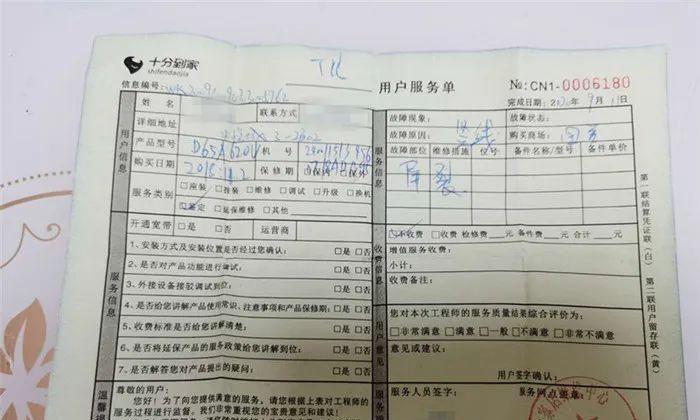 十分到家
shifendaojia
TCL
用户服务单
№:CN1-0006180
信息编号:
完成日期:2020年9月11日
用户信息
姓名
联系方式
详细地址
产品型号 D65A620U 机号
购买日期 保修期 □保内 □保外
服务类别 □座装 □挂装 □维修 □调试 □升级 □换机
鉴定 □延保维修 □其他
开通宽带 □是 □否 运营商
服务信息
1、安装方式及安装位置是否经过您确认: □是 □否
2、是否对产品功能进行调试: □是 □否
3、外接设备接驳调试到位: □是 □否
4、是否给您讲解产品使用常识、注意事项和产品保修期: □是 □否
5、收费标准是否给您讲解清楚: □是 □否
6、是否将延保产品的服务政策给您讲解到位: □是 □否
7、是否解答您对产品提出的疑问: □是 □否
温馨
尊敬的用户:
您好!为了向您提供满意的服务,请您根据上表对工程师的
服务过程进行监督。我们非常重视您的宝贵意见和建议!
服务信息
故障现象: 故障状态:
故障原因: 竖线 购买商场:
故障部位 维修措施 位号 备件名称/型号 备件单价
屏裂
收费信息
□不收费 □收费 检修费 元 备件费 元 合计 元
增值服务收费:
小计:
收费备注:
您对本次工程师的服务质量结果综合评价为:
□非常满意 □满意 □一般 □不满意 □非常不满意
意见或建议:
用户签字确认:
服务人员签字:
服务网点盖章:
第一联结算凭证联(白) 第二联用户留存联(黄)